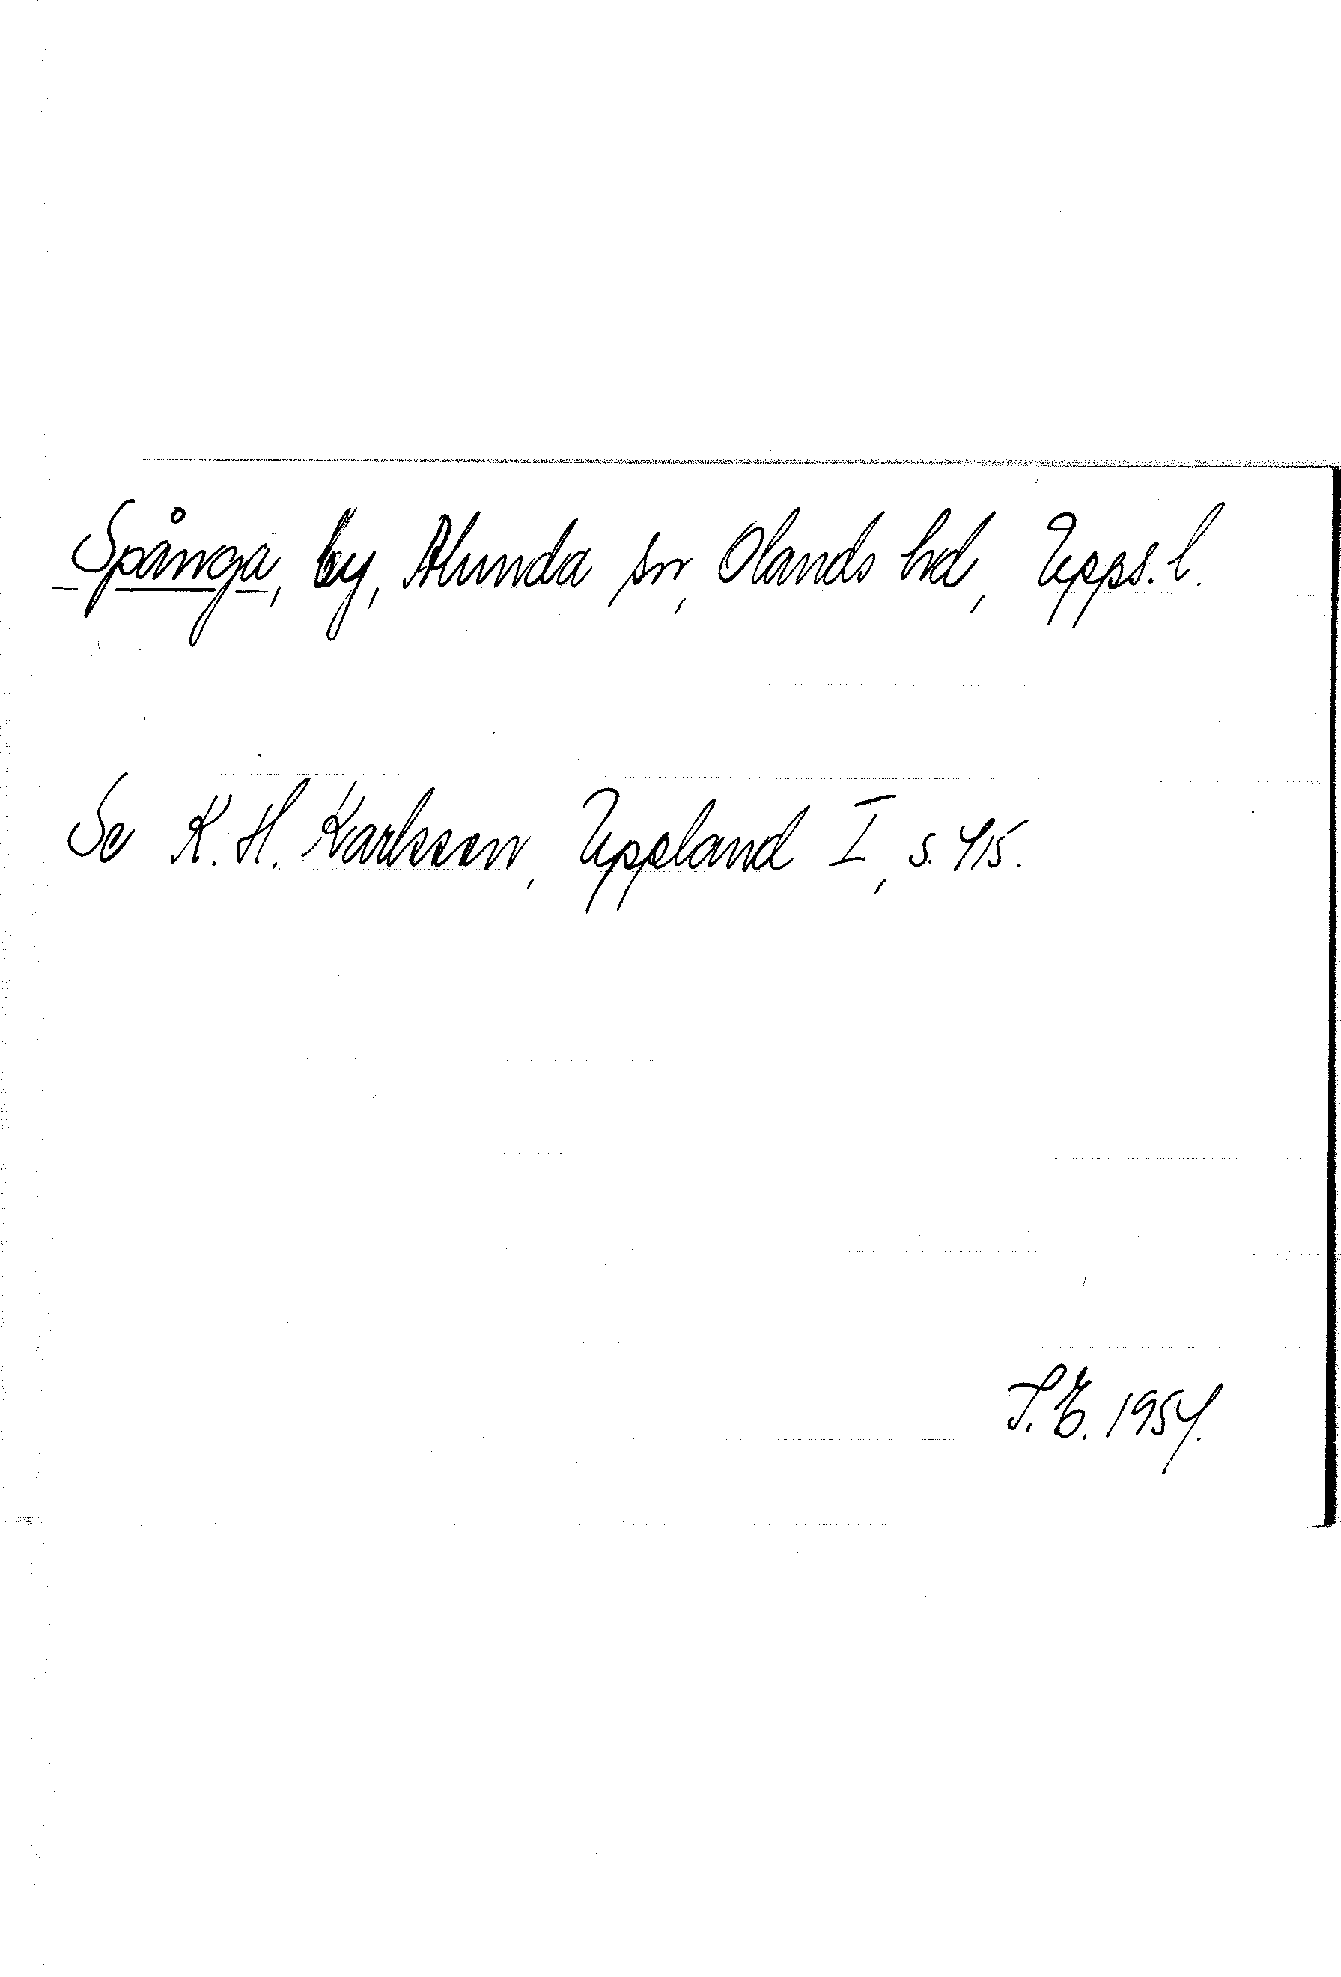 Spånga, by, Alunda sn, Olands hd, Upps. l.
Se K. H. Karlsson, Uppland I, s. 415.
S. E. 1954.